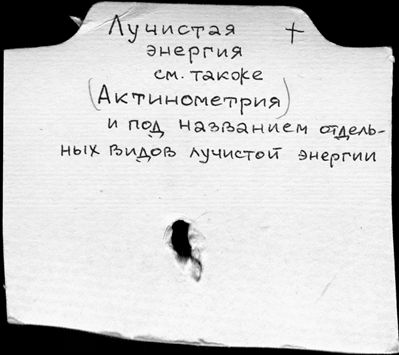 Лучистая +
энергия
см. также
(Актинометрия)
и под названием отдель-
ных видов лучистой энергии